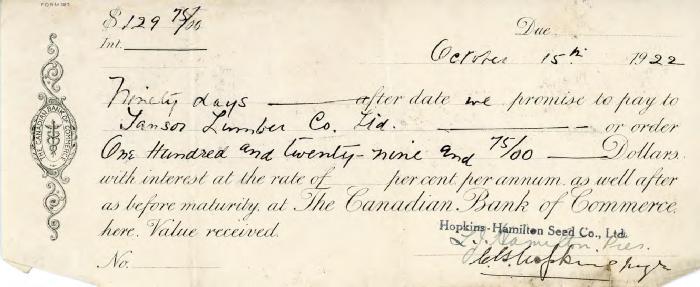 FORM 187
$129 75/00
Due
Int.
October 15th 1922
Ninety days after date we promise to pay to
Tansor Lumber Co. Ltd. or order
One Hundred and twenty-nine and 75/00 Dollars
with interest at the rate of per cent. per annum. as well after
as before maturity, at The Canadian Bank of Commerce
here. Value received.
Hopkins-Hamilton Seed Co., Ltd.
Hamilton. Pres.
No. Hopkins
THE CANADIAN BANK OF COMMERCE